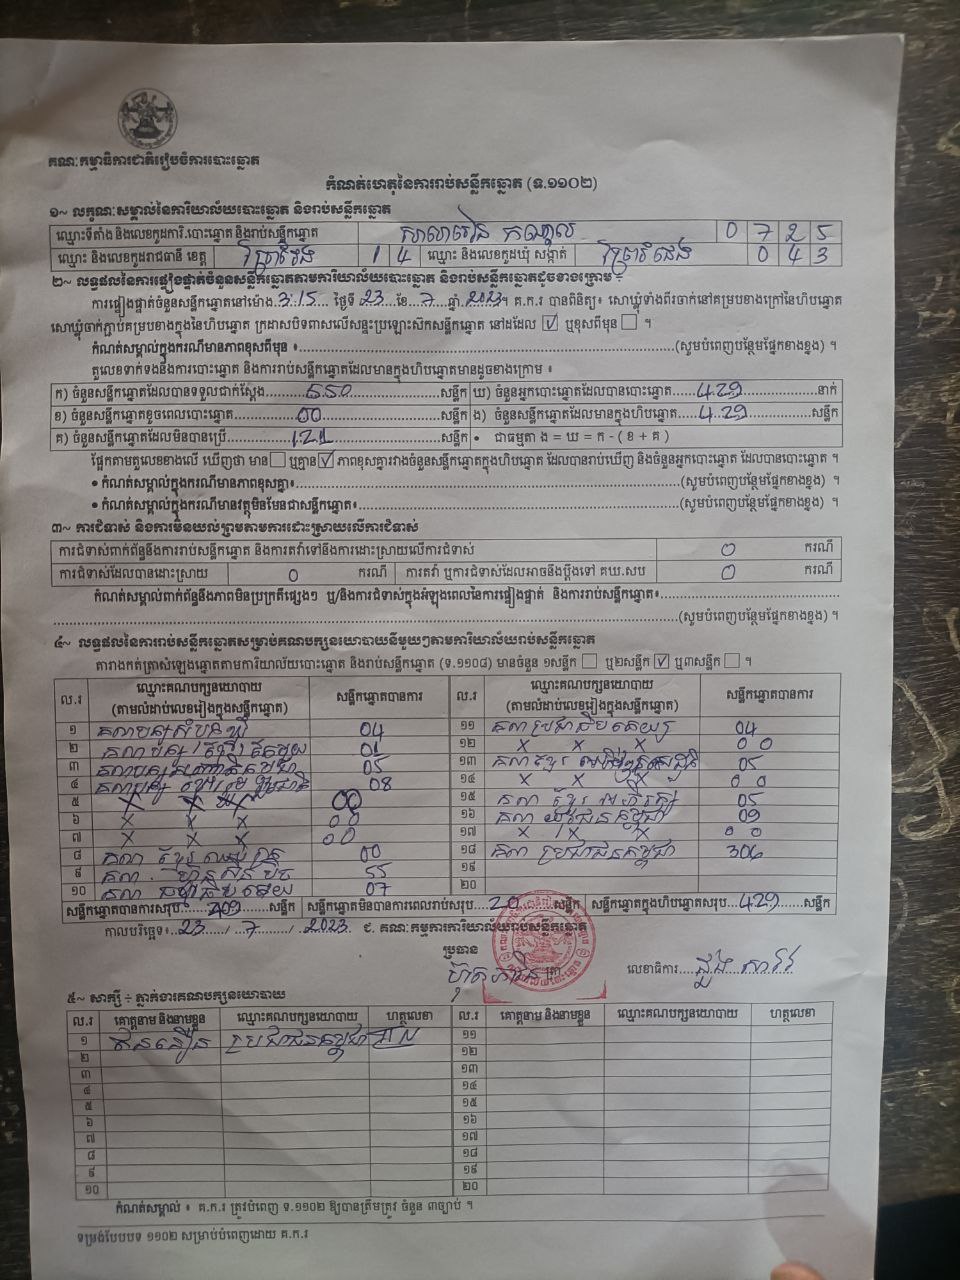 គណៈកម្មាធិការជាតិរៀបចំការបោះឆ្នោត
កំណត់ហេតុនៃការរាប់សន្លឹកឆ្នោត (ទ.១១០២)
១~ លក្ខណៈសម្គាល់នៃការិយាល័យបោះឆ្នោត និងរាប់សន្លឹកឆ្នោត
ឈ្មោះទីតាំង និងលេខកូដការិ.បោះឆ្នោត និងរាប់សន្លឹកឆ្នោត សាលារៀន កណ្តាល 0 7 2 5
ឈ្មោះ និងលេខកូដរាជធានី ខេត្ត ព្រៃវែង 1 4 ឈ្មោះ និងលេខកូដឃុំ សង្កាត់ 0 4 3
២~ លទ្ធផលនៃការផ្ទៀងផ្ទាត់ចំនួនសន្លឹកឆ្នោតតាមការិយាល័យបោះឆ្នោត និងរាប់សន្លឹកឆ្នោតដូចខាងក្រោម ៖
ការផ្ទៀងផ្ទាត់ចំនួនសន្លឹកឆ្នោតនៅម៉ោង 3:15 ថ្ងៃទី 23 ខែ 7 ឆ្នាំ 2023 ។ គ.ក.រ បានពិនិត្យ៖ សោឃ្លុំទាំងពីរចាក់នៅគម្របខាងក្រៅនៃហិបឆ្នោត
សោឃ្លុំចាក់ភ្ជាប់គម្របខាងក្នុងនៃហិបឆ្នោត ក្រដាសបិទពាសលើសន្ទះប្រឡោះស៊កសន្លឹកឆ្នោត នៅដដែល ☑ ឬខុសពីមុន ☐ ។
កំណត់សម្គាល់ក្នុងករណីមានភាពខុសពីមុន ៖ (សូមបំពេញបន្ថែមផ្នែកខាងខ្នង) ។
តួលេខទាក់ទងនឹងការបោះឆ្នោត និងការរាប់សន្លឹកឆ្នោតដែលមានក្នុងហិបឆ្នោតមានដូចខាងក្រោម ៖
ក) ចំនួនសន្លឹកឆ្នោតដែលបានទទួលជាក់ស្តែង 550 សន្លឹក ឃ) ចំនួនអ្នកបោះឆ្នោតដែលបានបោះឆ្នោត 429 នាក់
ខ) ចំនួនសន្លឹកឆ្នោតខូចពេលបោះឆ្នោត 00 សន្លឹក ង) ចំនួនសន្លឹកឆ្នោតដែលមានក្នុងហិបឆ្នោត 429 សន្លឹក
គ) ចំនួនសន្លឹកឆ្នោតដែលមិនបានប្រើ 121 សន្លឹក • ជាធម្មតា ង = ឃ = ក - ( ខ + គ )
ផ្អែកតាមតួលេខខាងលើ ឃើញថា មាន ☐ ឬគ្មាន ☑ ភាពខុសគ្នារវាងចំនួនសន្លឹកឆ្នោតក្នុងហិបឆ្នោត ដែលបានរាប់ឃើញ និងចំនួនអ្នកបោះឆ្នោត ដែលបានបោះឆ្នោត ។
• កំណត់សម្គាល់ក្នុងករណីមានភាពខុសគ្នា៖ (សូមបំពេញបន្ថែមផ្នែកខាងខ្នង) ។
• កំណត់សម្គាល់ក្នុងករណីមានវត្ថុមិនមែនជាសន្លឹកឆ្នោត៖ (សូមបំពេញបន្ថែមផ្នែកខាងខ្នង) ។
៣~ ការជំទាស់ និងការមិនយល់ព្រមតាមការដោះស្រាយលើការជំទាស់
ការជំទាស់ពាក់ព័ន្ធនឹងការរាប់សន្លឹកឆ្នោត និងការតវ៉ាទៅនឹងការដោះស្រាយលើការជំទាស់ 0 ករណី
ការជំទាស់ដែលបានដោះស្រាយ 0 ករណី ការតវ៉ា ឬការជំទាស់ដែលអាចនឹងប្តឹងទៅ គឃ.សប 0 ករណី
កំណត់សម្គាល់ពាក់ព័ន្ធនឹងភាពមិនប្រក្រតីផ្សេងៗ ឬ/និងការជំទាស់ក្នុងអំឡុងពេលនៃការផ្ទៀងផ្ទាត់ និងការរាប់សន្លឹកឆ្នោត៖
(សូមបំពេញបន្ថែមផ្នែកខាងខ្នង) ។
៤~ លទ្ធផលនៃការរាប់សន្លឹកឆ្នោតសម្រាប់គណបក្សនយោបាយនីមួយៗតាមការិយាល័យរាប់សន្លឹកឆ្នោត
តារាងកត់ត្រាសំឡេងឆ្នោតតាមការិយាល័យបោះឆ្នោត និងរាប់សន្លឹកឆ្នោត (ទ.១១០៨) មានចំនួន ១សន្លឹក ☐ ឬ២សន្លឹក ☑ ឬ៣សន្លឹក ☐ ។
ល.រ ឈ្មោះគណបក្សនយោបាយ (តាមលំដាប់លេខរៀងក្នុងសន្លឹកឆ្នោត) សន្លឹកឆ្នោតបានការ ល.រ ឈ្មោះគណបក្សនយោបាយ (តាមលំដាប់លេខរៀងក្នុងសន្លឹកឆ្នោត) សន្លឹកឆ្នោតបានការ
១ 04 ១១ 04
២ 01 ១២ x x x 00
៣ 05 ១៣ 05
៤ 08 ១៤ x x x 00
៥ x x x 00 ១៥ 05
៦ x x x 00 ១៦ 09
៧ x x x 00 ១៧ x x x 00
៨ 00 ១៨ គណ ប្រជាជនកម្ពុជា 306
៩ 55 ១៩
១០ 07 ២០
សន្លឹកឆ្នោតបានការសរុប 409 សន្លឹក សន្លឹកឆ្នោតមិនបានការពេលរាប់សរុប 20 សន្លឹក សន្លឹកឆ្នោតក្នុងហិបឆ្នោតសរុប 429 សន្លឹក
កាលបរិច្ឆេទ៖ 23 / 7 / 2023 ជ. គណៈកម្មការការិយាល័យរាប់សន្លឹកឆ្នោត
ប្រធាន
លេខាធិការ
៥~ សាក្សី ៖ ភ្នាក់ងារគណបក្សនយោបាយ
ល.រ គោត្តនាម និងនាមខ្លួន ឈ្មោះគណបក្សនយោបាយ ហត្ថលេខា ល.រ គោត្តនាម និងនាមខ្លួន ឈ្មោះគណបក្សនយោបាយ ហត្ថលេខា
១ ប្រជាជនកម្ពុជា ១១
២ ១២
៣ ១៣
៤ ១៤
៥ ១៥
៦ ១៦
៧ ១៧
៨ ១៨
៩ ១៩
១០ ២០
កំណត់សម្គាល់ ៖ គ.ក.រ ត្រូវបំពេញ ទ.១១០២ ឱ្យបានត្រឹមត្រូវ ចំនួន ៣ច្បាប់ ។
ទម្រង់បែបបទ ១១០២ សម្រាប់បំពេញដោយ គ.ក.រ